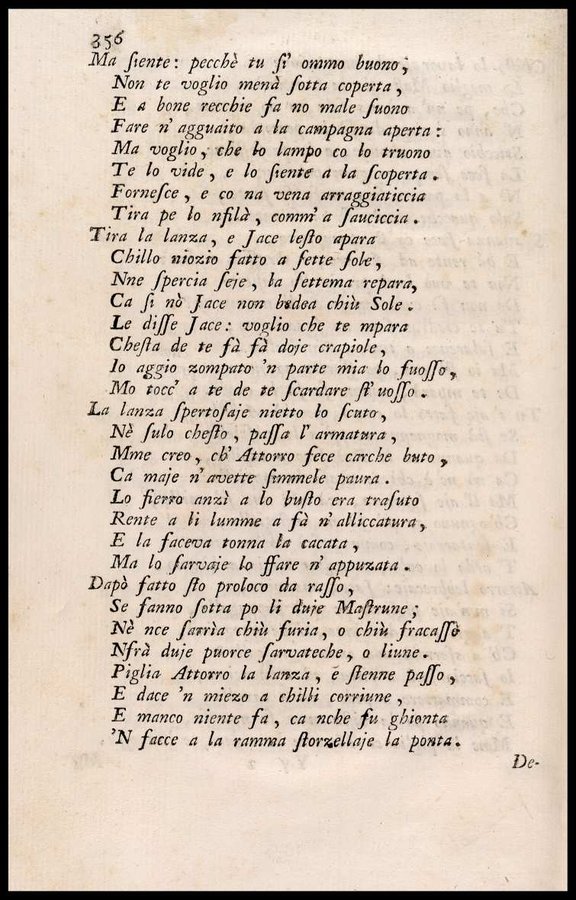 356
Ma ſiente: pecchè tu ſi' ommo buono,
Non te voglio menà ſotta coperta,
E a bone recchie fa no male ſuono
Fare n' agguaito a la campagna aperta:
Ma voglio, che lo lampo co lo truono
Te lo vide, e lo ſiente a la ſcoperta.
Forneſce, e co na vena arraggiaticcia
Tira pe lo nfilà, comm' a ſauciccia.
Tira la lanza, e Jace leſto apara
Chillo niozio fatto a ſette ſole,
Nne ſpercia ſeje, la ſettema repara,
Ca ſi nò Jace non bedea chiù Sole.
Le diſſe Jace: voglio che te mpara
Cheſta de te fà fà doje crapiole,
Io aggio zompato 'n parte mia lo fuoſſo,
Mo tocc' a te de te ſcardare ſt' uoſſo.
La lanza ſpertoſaje nietto lo ſcuto,
Nè ſulo cheſto, paſſa l' armatura,
Mme creo, ch' Attorro fece carche buto,
Ca maje n' avette ſimmele paura.
Lo fierro anzì a lo buſto era traſuto
Rente a li lumme a fà n' alliccatura,
E la faceva tonna la cacata,
Ma lo ſarvaje lo ſfare n' appuzata.
Dapò fatto ſto proloco da raſſo,
Se fanno ſotta po li duje Maſtrune;
Nè nce ſarrìa chiù furia, o chiù fracaſſo
Nfrà duje puorce ſarvateche, o liune.
Piglia Attorro la lanza, e ſtenne paſſo,
E dace 'n miezo a chilli corriune,
E manco niente fa, ca nche fu ghionta
'N facce a la ramma ſtorzellaje la ponta.
De-